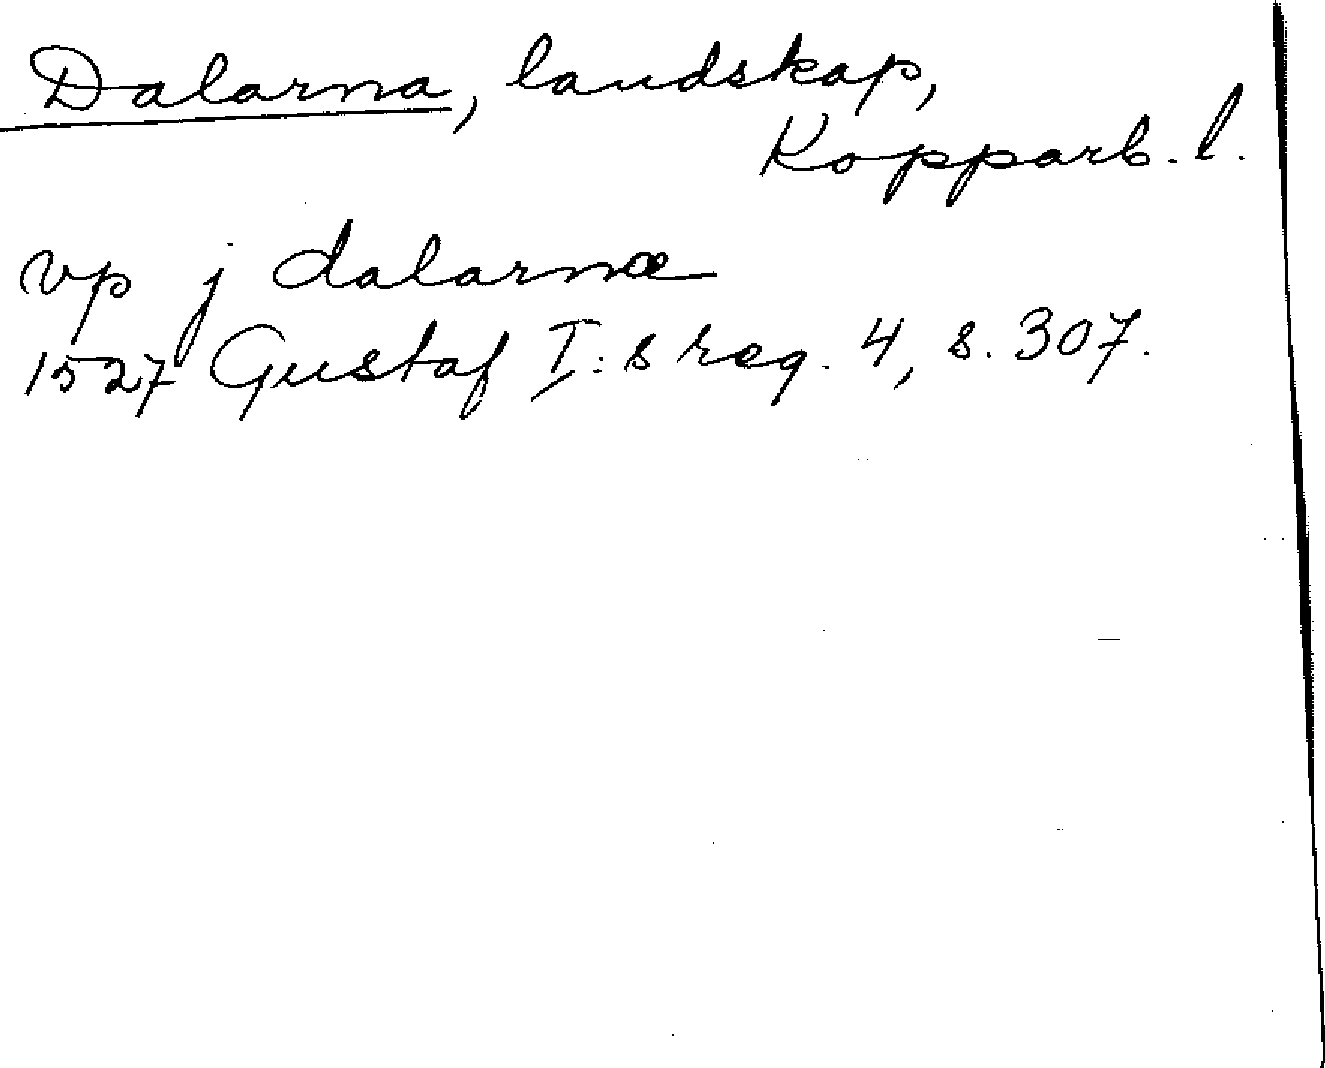 Dalarna, landskap,
Kopparb. l.
vp j dalarnæ
1527 Gustaf I:s reg. 4, s. 307.